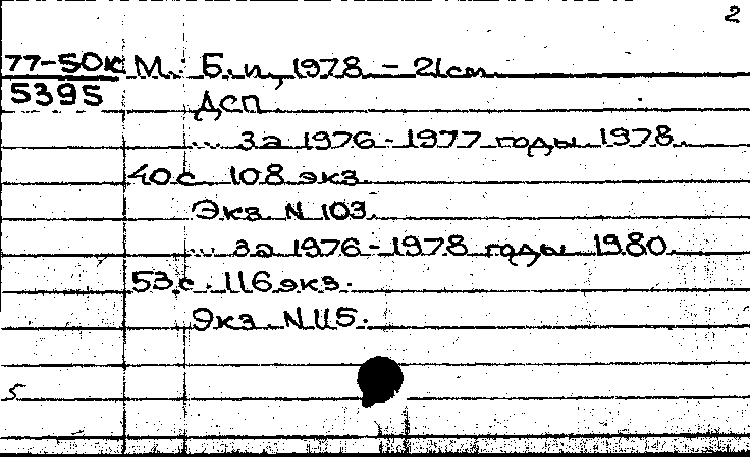 2
77-50к М.: Б. и., 1978. - 21 см.
5395 ДСП
... За 1976-1977 годы 1978.
40 с. 108 экз.
Экз. N 103.
... За 1976-1978 годы 1980.
53 с. 116 экз.
Экз. N 115.
5